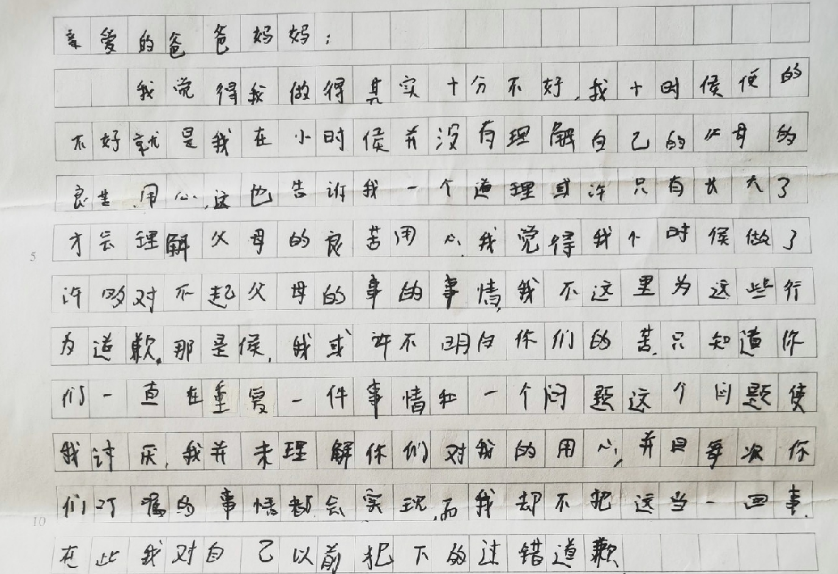 亲爱的爸爸妈妈：
我觉得我做得其实十分不好，我小时候便的
不好就是我在小时侯并没有理解自己的父母的
良苦用心，这也告诉我一个道理或许只有长大了
5 才会理解父母的良苦用心，我觉得我小时侯做了
许多对不起父母的事的事情，我不这里为这些行
为道歉，那是侯，我或许不明白你们的苦，只知道你
们一直在重复一件事情和一个问题这个问题使
我讨厌，我并未理解你们对我的用心，并且每次你
10 们叮嘱的事情都会实现，而我却不把这当一回事，
在此我对自己以前犯下的过错道歉